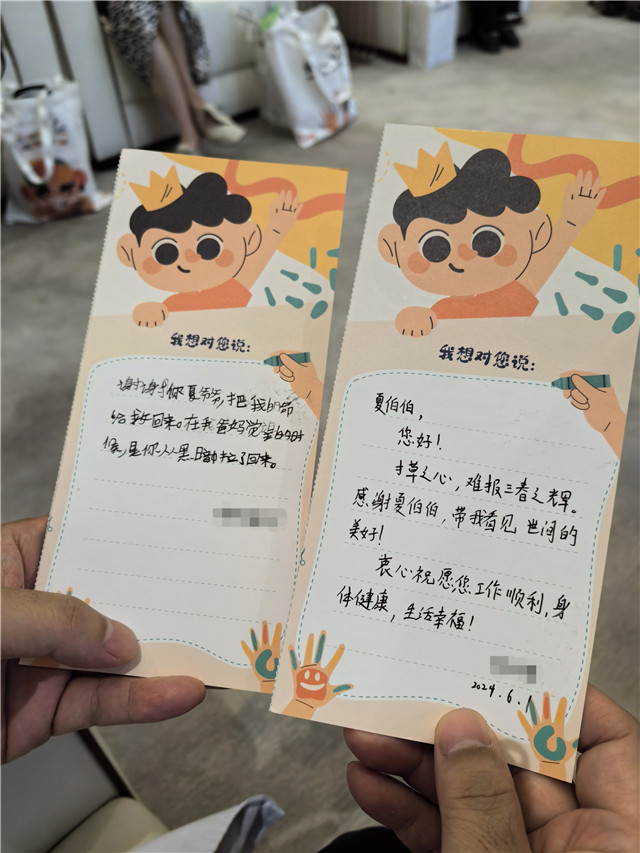 我想对您说:
谢谢你夏爷爷,把我的命
给我夺回来。在我爸妈绝望的时
候,是你从黑暗中拉了回来。
我想对您说:
夏伯伯,
您好!
寸草之心,难报三春之辉。
感谢夏伯伯,带我看见世间的
美好!
衷心祝愿您工作顺利,身
体健康,生活幸福!
2024.6.1